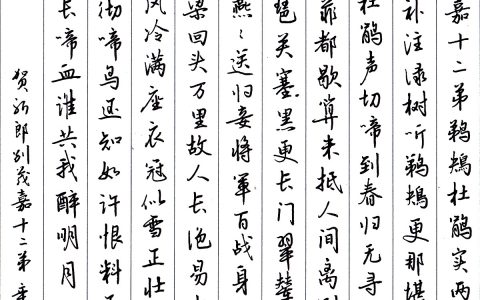 嘉十二弟鹈鴂杜鹃实两
补注绿树听鹈鴂更那堪
杜鹃声切啼到春归无寻
菲都歇算未抵人间离
琶关塞黑更长门翠辇
燕〻送归妾将军百战身
梁回头万里故人长绝易
风冷满座衣冠似雪正壮
彻啼鸟还知如许恨料
长啼血谁共我醉明月
贺新郎别茂嘉十二弟